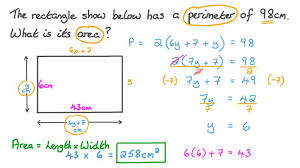 The rectangle show below has a perimeter of 98cm.
What is its area?
6y+7
y cm
6cm
43cm
6y+7 cm
P = 2(6y+7+y) = 98
2(7y+7) = 98
2 2
(-7) 7y+7 = 49 (-7)
7y = 42
7 7
y = 6
Area = Length x Width
43 x 6 = 258cm²
6(6)+7 = 43